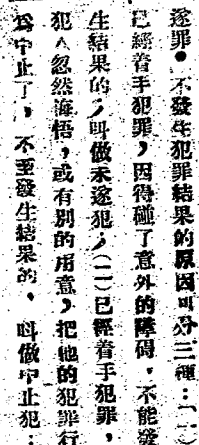 遂罪。不發生犯罪結果的原因可分三種：（一）
已經着手犯罪，因得碰了意外的障碍，不能發
生結果的，叫做未遂犯，（二）已經着手犯罪，
犯人忽然海悟，或有別的用意，把他的犯罪行
爲中止了，不至發生結果的，叫做中止犯：